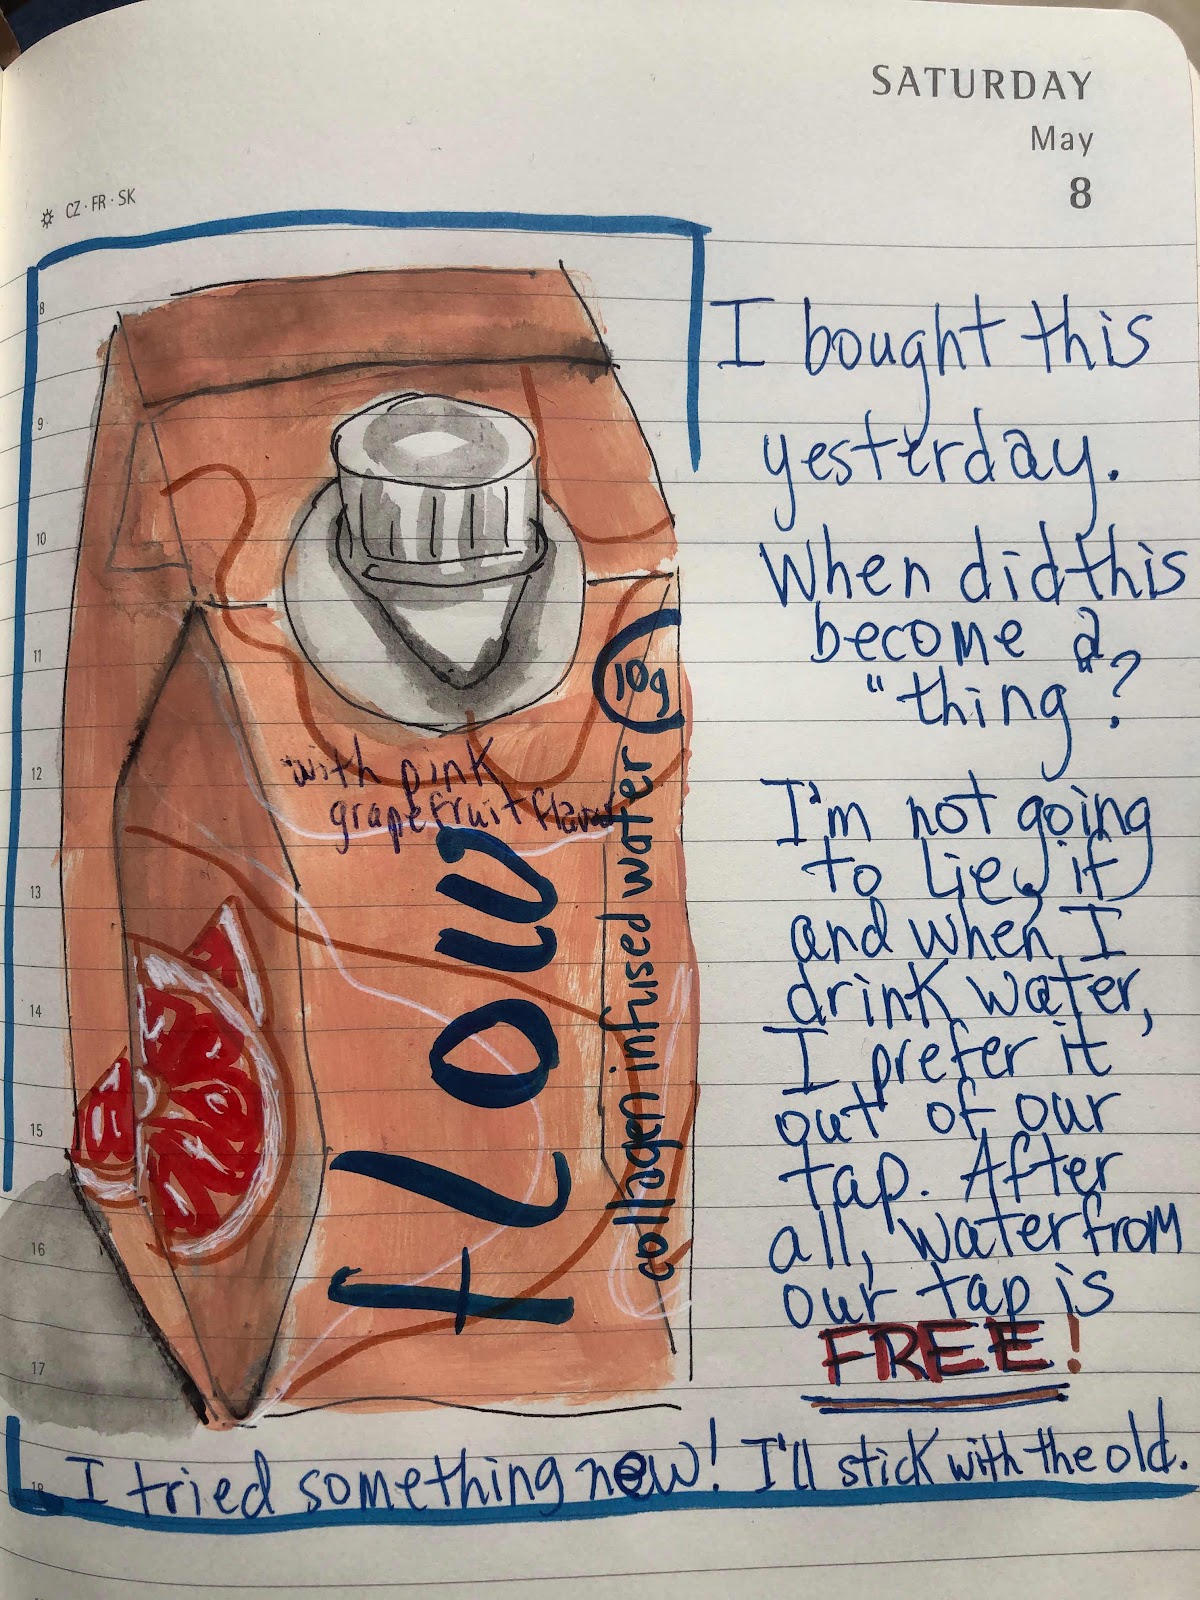 SATURDAY
May
8
CZ · FR · SK
8
9
10
11
12
13
14
15
16
17
18
with pink
grapefruit flavor
flow
collagen infused water 10g
I bought this
yesterday.
When did this
become a
"thing"?
I'm not going
to lie, if
and when I
drink water,
I prefer it
out of our
tap. After
all, water from
our tap is
FREE!
I tried something new! I'll stick with the old.